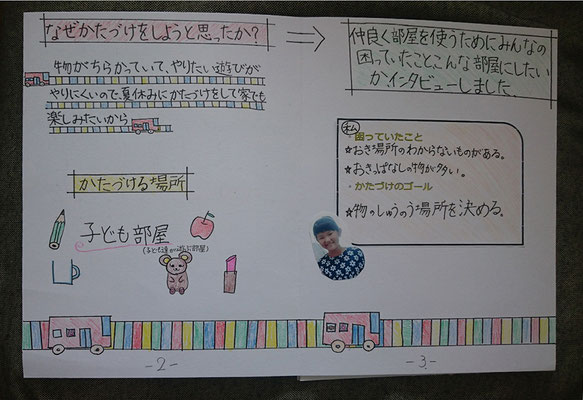 なぜかたづけをしようと思ったか?
物がちらかっていて、やりたい遊びが
やりにくいので、夏休みにかたづけをして家でも
楽しみたいから
かたづける場所
子ども部屋
(子ども達が遊ぶ部屋)
-2-
仲良く部屋を使うためにみんなの
困っていたことこんな部屋にしたい
かインタビューしました。
私
・困っていたこと
☆おき場所のわからないものがある。
☆おきっぱなしの物が多い。
・かたづけのゴール
☆物のしゅうのう場所を決める。
-3-